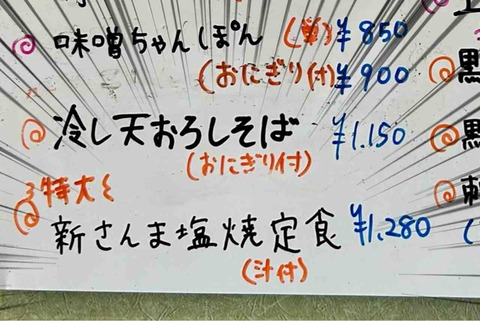 味噌ちゃんぽん (単) ¥850
(おにぎり付) ¥900
冷し天おろしそば ¥1.150
(おにぎり付)
特大
新さんま塩焼定食 ¥1,280
(汁付)